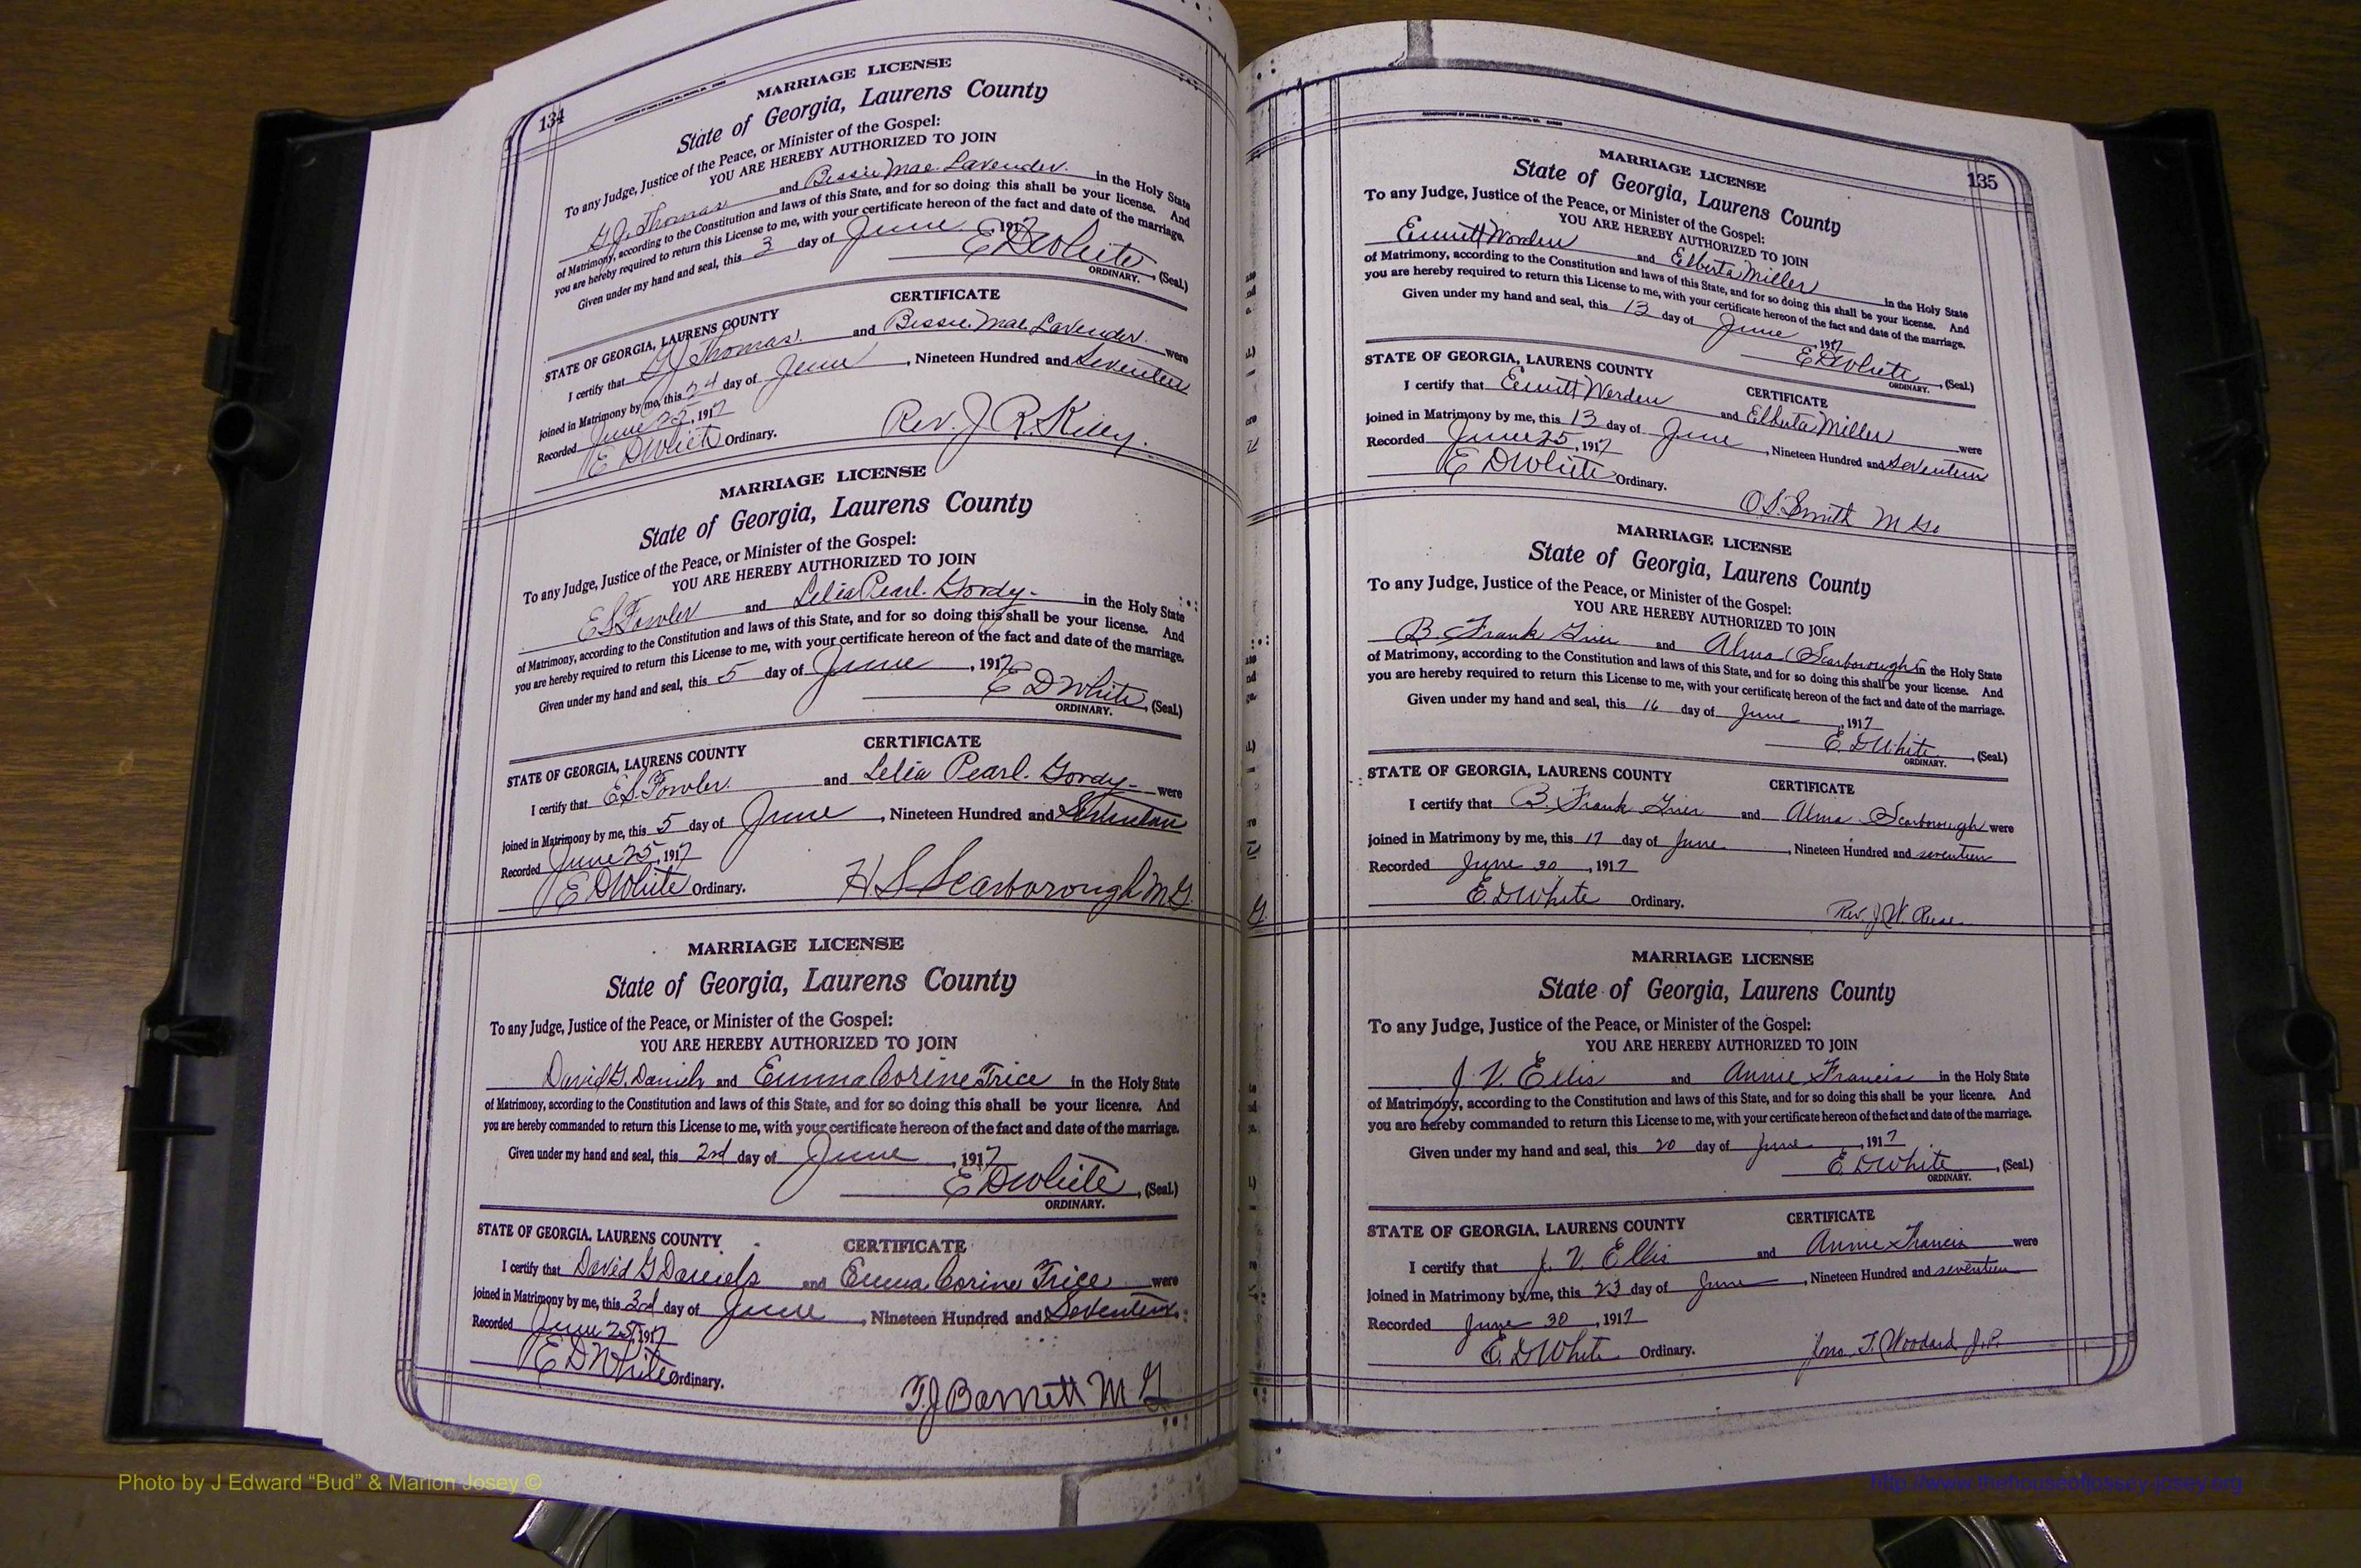 134
MARRIAGE LICENSE
State of Georgia, Laurens County
To any Judge, Justice of the Peace, or Minister of the Gospel:
YOU ARE HEREBY AUTHORIZED TO JOIN
Thomas and Bessie Mae Lavender. in the Holy State
of Matrimony, according to the Constitution and laws of this State, and for so doing this shall be your license. And
you are hereby required to return this License to me, with your certificate hereon of the fact and date of the marriage.
Given under my hand and seal, this 3 day of June 1917
E D White (Seal.)
ORDINARY.
CERTIFICATE
STATE OF GEORGIA, LAURENS COUNTY
I certify that Thomas and Bessie Mae Lavender were
joined in Matrimony by me, this 24 day of June, Nineteen Hundred and Seventeen
Recorded June 25, 1917
E D White Ordinary.
Rev. J. R. Kelley.
MARRIAGE LICENSE
State of Georgia, Laurens County
To any Judge, Justice of the Peace, or Minister of the Gospel:
YOU ARE HEREBY AUTHORIZED TO JOIN
E S Fowler and Lelia Pearl. Gordy - in the Holy State
of Matrimony, according to the Constitution and laws of this State, and for so doing this shall be your license. And
you are hereby required to return this License to me, with your certificate hereon of the fact and date of the marriage.
Given under my hand and seal, this 5 day of June, 1917
E D White, (Seal.)
ORDINARY.
CERTIFICATE
STATE OF GEORGIA, LAURENS COUNTY
I certify that E S. Fowler. and Lelia Pearl. Gordy - were
joined in Matrimony by me, this 5 day of June, Nineteen Hundred and Seventeen
Recorded June 25, 1917
E D White Ordinary.
H S Scarborough M G.
MARRIAGE LICENSE
State of Georgia, Laurens County
To any Judge, Justice of the Peace, or Minister of the Gospel:
YOU ARE HEREBY AUTHORIZED TO JOIN
David G. Daniels and Emma Corine Trice in the Holy State
of Matrimony, according to the Constitution and laws of this State, and for so doing this shall be your licenre. And
you are hereby commanded to return this License to me, with your certificate hereon of the fact and date of the marriage.
Given under my hand and seal, this 2nd day of June, 1917
E D White, (Seal.)
ORDINARY.
STATE OF GEORGIA. LAURENS COUNTY
CERTIFICATE
I certify that David G Daniels and Emma Corine Trice were
joined in Matrimony by me, this 3d day of June, Nineteen Hundred and Seventeen.
Recorded June 25, 1917
E D White Ordinary.
T. J Barnett M G
135
MARRIAGE LICENSE
State of Georgia, Laurens County
To any Judge, Justice of the Peace, or Minister of the Gospel:
YOU ARE HEREBY AUTHORIZED TO JOIN
Emmitt Worden and Elberta Miller in the Holy State
of Matrimony, according to the Constitution and laws of this State, and for so doing this shall be your license. And
you are hereby required to return this License to me, with your certificate hereon of the fact and date of the marriage.
Given under my hand and seal, this 13 day of June, 1917
E D White, (Seal.)
ORDINARY.
STATE OF GEORGIA, LAURENS COUNTY
CERTIFICATE
I certify that Emmitt Worden and Elberta Miller were
joined in Matrimony by me, this 13 day of June, Nineteen Hundred and Seventeen
Recorded June 25, 1917
E D White Ordinary.
O. S. Smith M
MARRIAGE LICENSE
State of Georgia, Laurens County
To any Judge, Justice of the Peace, or Minister of the Gospel:
YOU ARE HEREBY AUTHORIZED TO JOIN
B. Frank Grier and Alma Scarborough in the Holy State
of Matrimony, according to the Constitution and laws of this State, and for so doing this shall be your license. And
you are hereby required to return this License to me, with your certificate hereon of the fact and date of the marriage.
Given under my hand and seal, this 16 day of June, 1917
E. D White, (Seal.)
ORDINARY.
STATE OF GEORGIA, LAURENS COUNTY
CERTIFICATE
I certify that B. Frank Grier and Alma Scarborough were
joined in Matrimony by me, this 17 day of June, Nineteen Hundred and seventeen
Recorded June 30, 1917
E. D White Ordinary.
Rev. J. W. Reese
MARRIAGE LICENSE
State of Georgia, Laurens County
To any Judge, Justice of the Peace, or Minister of the Gospel:
YOU ARE HEREBY AUTHORIZED TO JOIN
J. V. Ellis and Annie Francis in the Holy State
of Matrimony, according to the Constitution and laws of this State, and for so doing this shall be your licenre. And
you are hereby commanded to return this License to me, with your certificate hereon of the fact and date of the marriage.
Given under my hand and seal, this 20 day of June, 1917
E. D White, (Seal.)
ORDINARY.
STATE OF GEORGIA, LAURENS COUNTY
CERTIFICATE
I certify that J. V. Ellis and Annie Francis were
joined in Matrimony by me, this 23 day of June, Nineteen Hundred and seventeen
Recorded June 30, 1917
E. D White Ordinary.
Jno. T. Woodard J. P.
Photo by J Edward “Bud” & Marion Josey ©
http://www.thehouseofjossey-josey.org